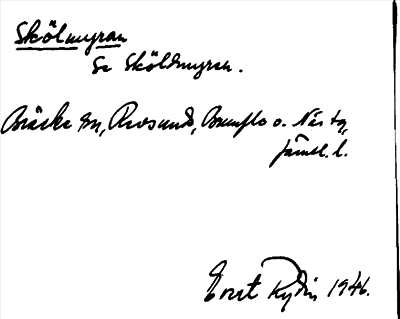 Skölmyran
Se Sköldmyren.
Bräcke sn, Revsunds, Brunflo o. Näs tg,
Jämtl. l.
Ernst Rydin 1946.